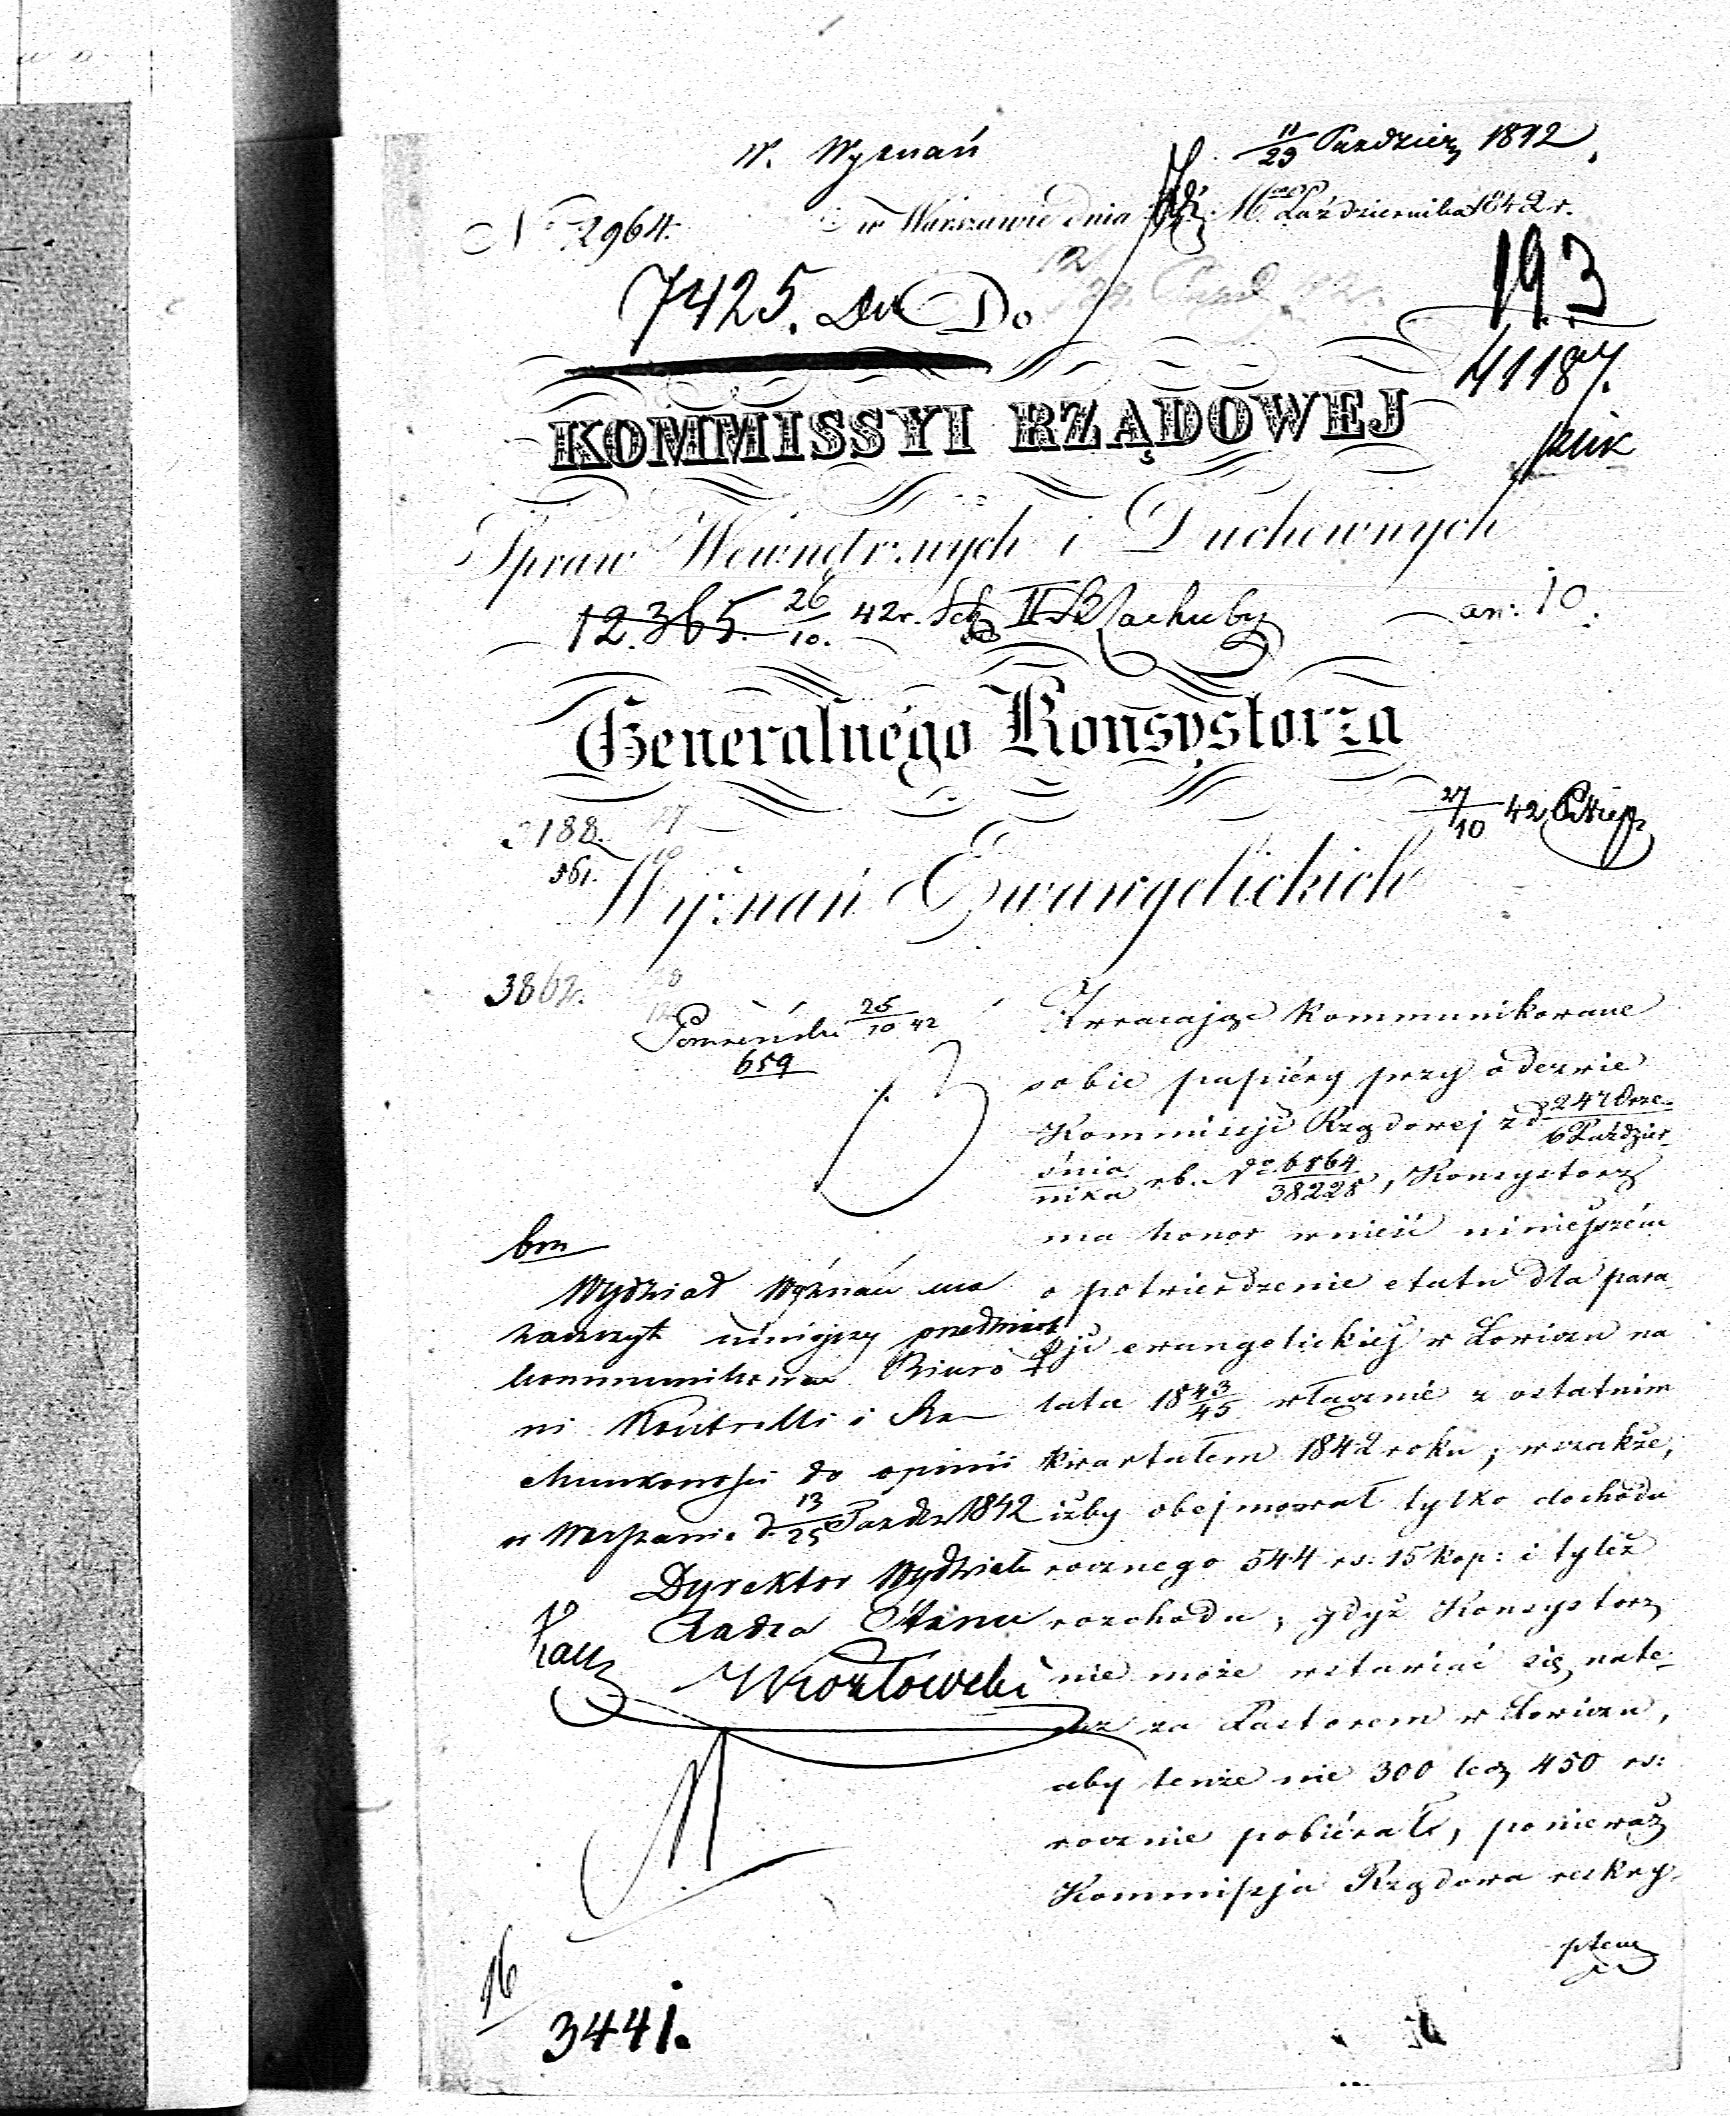 W. Wyznań
11/23 Paździer 1842
No 2964.
w Warszawie dnia 16 Października 1842 r.
193
7425. Do
41187.
KOMMISSYI RZĄDOWEJ
Spraw Wewnętrznych i Duchownych
12.365. 26/10. 42 r. II
an: 10.
Generalnego Konsystorza
27/10 42
2188.
561.
Wyznań Ewangelickich
3862.
25/10 42
659
Zwracając kommunikowane
sobie papiéry przy odezwie
Kommissji Rządowej z d 24 Wrze-/6 Paździer-
śnia/nika rb. No 6864/38228, Konsystorz
ma honor wnieść niniejszém
o potwierdzenie etatu dla para-
fji ewangelickiej w Łowiczu na
lata 18 43/45 włącznie z ostatnim
kwartałem 1842 roku; wszakże,
iżby obejmował tylko dochodu
rocznego 544 rs: 15 kop: i tyleż
rozchodu, gdyż Konsystorz
nie może wstawiać się nate-
raz za Pastorem w Łowiczu,
aby tenże nie 300 lecz 450 rs:
rocznie pobiérał, ponieważ
Kommissja Rządowa reskry-
ptem
brm
Wydział Wyznań ma
zaszczyt niniejszy przedmiot
kommunikować Biuro
wi Kontrolli i Ra-
chunkowości do opinii
w Warszawie d. 13/25 Paźdz 1842
Dyrektor Wydziału
Radca Stanu
Kozłowski
16
3441.